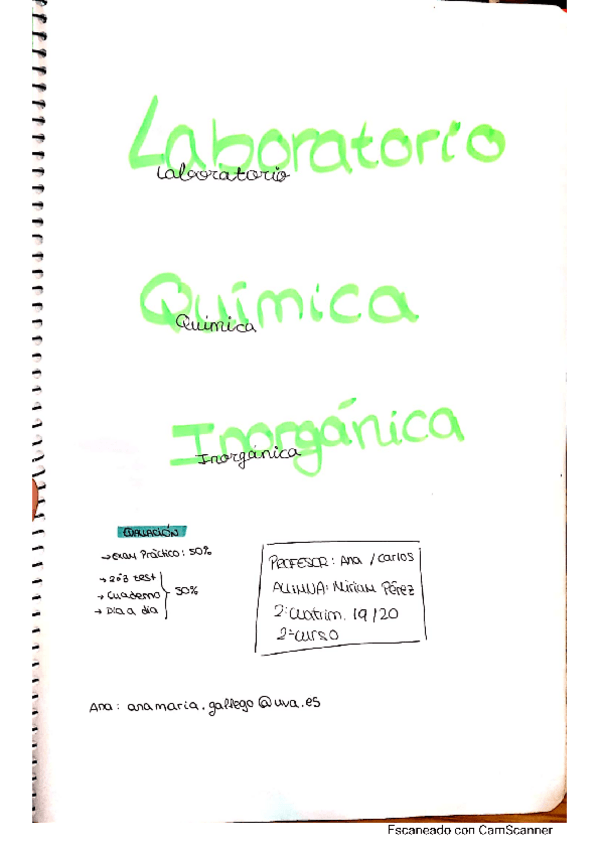 Laboratorio
Laboratorio
Química
Química
Inorgánica
Inorgánica
EVALUACIÓN
→ Exam Práctico: 50%
→ 2 ó 3 test
→ Cuaderno
→ Día a día
50%
PROFESOR: Ana / Carlos
ALUMNA: Miriam Pérez
2º Cuatrim. 19/20
2º curso
Ana: anamaria.gallego@uva.es
Escaneado con CamScanner